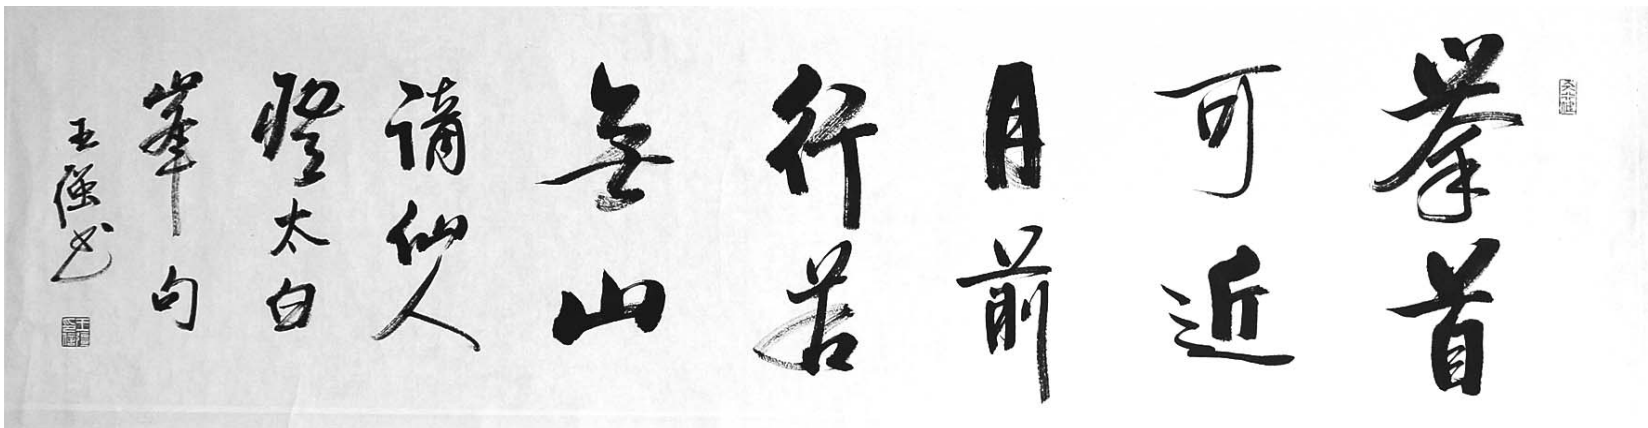 舉首
可近
月前
行若
無山
謫仙人
登太白
峯句
王强书